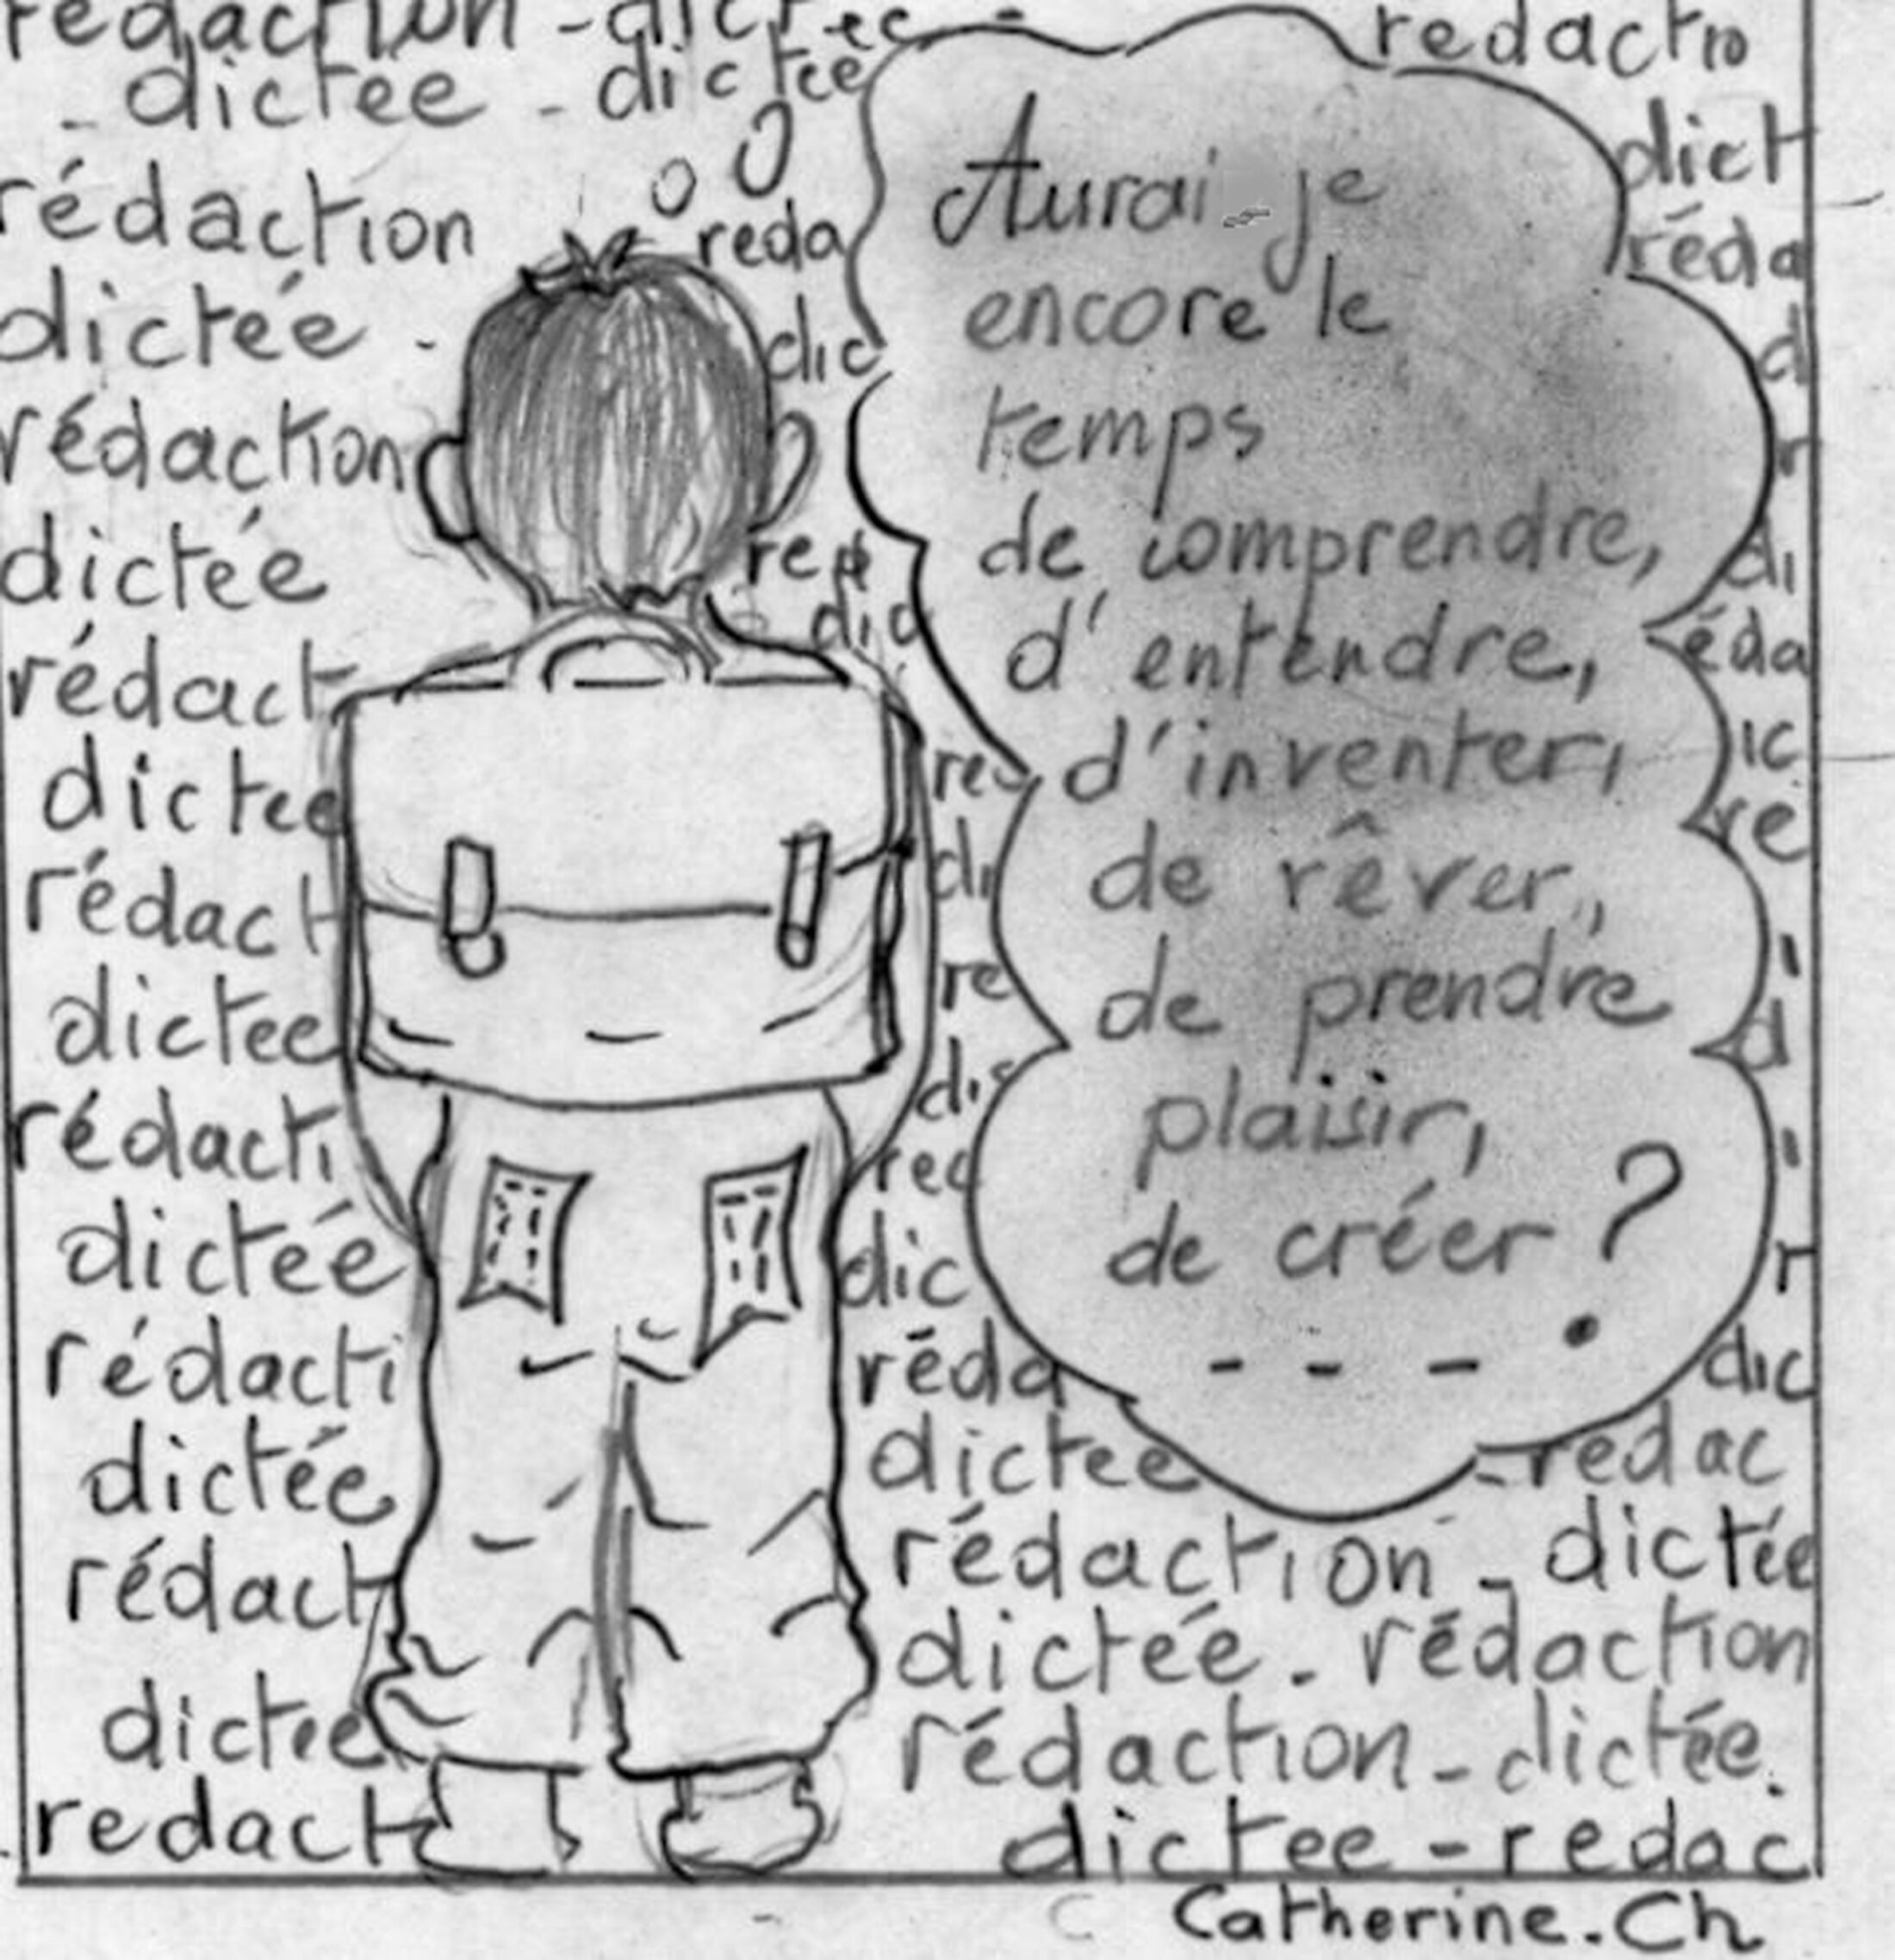 rédaction - dictée -
redactio
- dictée - dictée
dict
rédaction
reda
réda
dictée -
dic
d
rédaction
r
dictée
red
di
dic
rédact
éda
dictee
red
ic
re
rédact
di
dictee
re
d
rédacti
dic
rec
dictée
dic
r
rédacti
réda
dic
dictée
dictee
-redac
rédact
rédaction - dictée
dictée - rédaction
dictee
rédaction - dictée.
redact
dictee - redac
Aurai-je
encore le
temps
de comprendre,
d'entendre,
d'inventer,
de rêver,
de prendre
plaisir,
de créer ?
- - -
Catherine.Ch